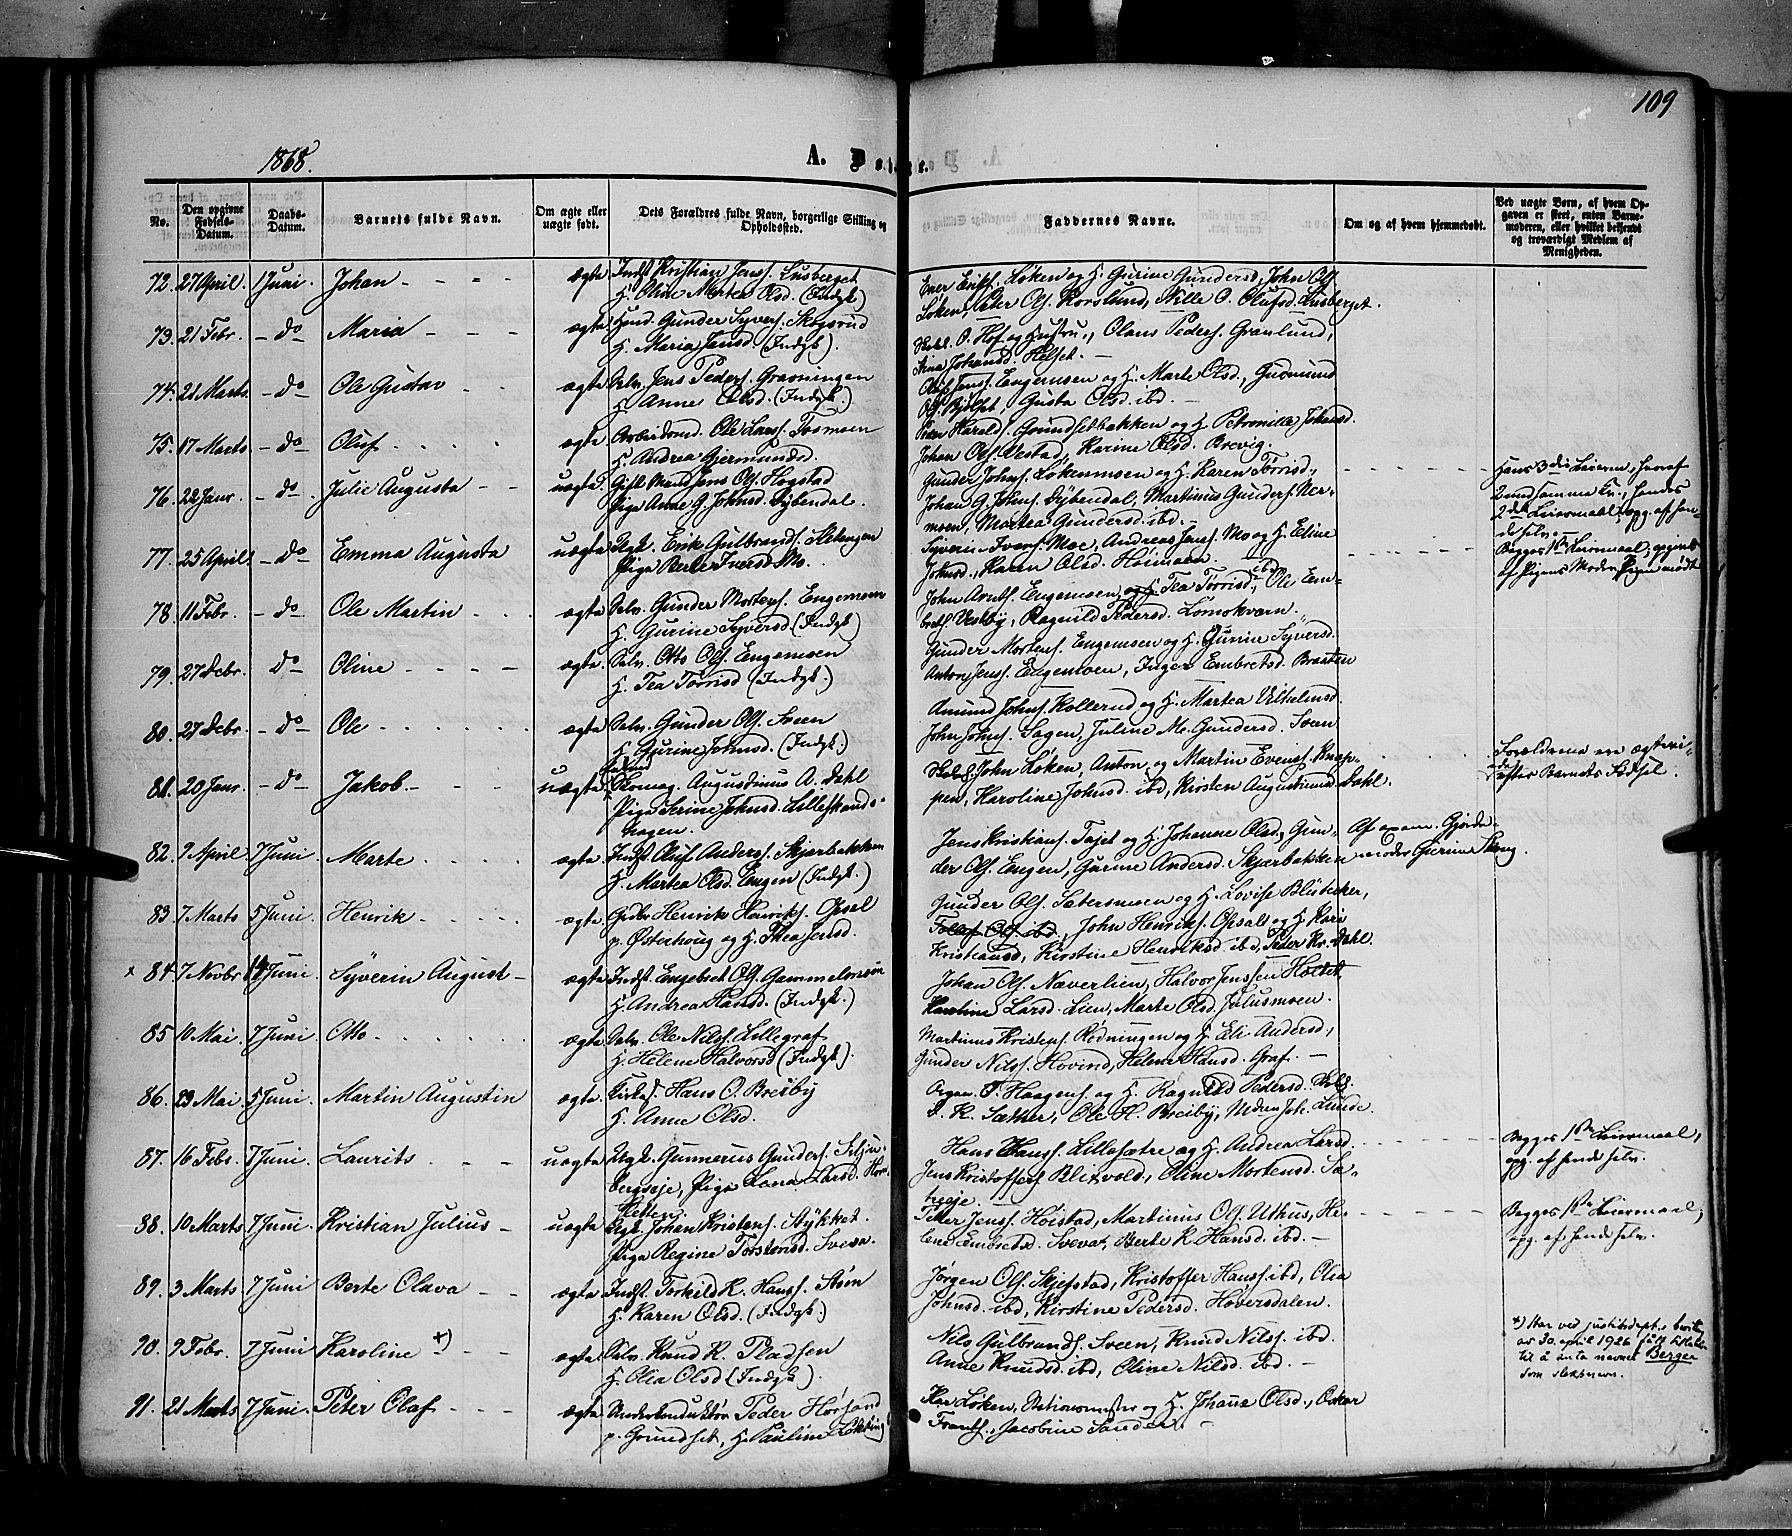 109
1868.
A. Døbte.
No.
Den opgivne Fødsels-Datum.
Daabs-Datum.
Barnets fulde Navn.
Om ægte eller uægte født.
Dets Forældres fulde Navn, borgerlige Stilling og Opholdsted.
Faddernes Navne.
Om og af hvem hjemmedøbt.
Ved uægte Børn, af hvem Opgaven er skeet, enten Barnemoderen, eller hvilket beskendt og troværdigt Medlem af Menigheden.
72. 27 April. 1 Juni. Johan ægte Indst Kristian Jenss. Lusberget
H. Oline Martea Olsd. (Indgk)
Ener Eriks. Løken og H. Gurine Gundersd, John Ols.
Løken, Peter Ols. Korslund, Nille O. Olufsd. Lusberget.
73. 21 Febr. do Maria ægte Gunder Syvers. Skogsrud
H. Maria Jansd. (Indgk).
O. Hof og Hustru, Olaus Peders. Grønlund,
Stina Johansd. Helset.
74. 21 Marts do Ole Gustav ægte Selv. Jens Peders. Gravningen
H. Anne Olsd. (Indgk.)
Oluf Jenss. Engemoen og H. Marte Olsd., Gudmund
Ols. Bjølset, Gusta Olsd. ibd.
75 17 Marts do Oluf ægte Arbeidsmd. Ole Larss. Tosmoen
H. Andrea Gjermundsd.
Peder Harals. Grundsetbakken og H. Petronille Johansd.
Johan Ols. Vestad, Karine Olsd. Brevig.
76. 22 Janr. do Julie Augusta uægte Gift Mand Jens Ols. Hogstad
Pige Anne G. Johnsd. Dybendal.
Gunder Johns. Løkenmoen og H. Karen Torrisd.,
Johan G. Johns. Dybendal, Martinus Gunders. Nermoen, Martea Gundersd. ibd.
Hans 3die Leierm., hvoraf
2 med samme Kv., hendes
2det Leiermaal; opg. af hende selv.
77. 25 April do Emma Augusta uægte Ungk. Erik Gulbrands. Stengen
Pige Berte Iversd. Mo.
Syverin Ivers. Moe, Andreas Jens. Mo og H. Eline
Johnsd., Karen Olsd. Høimoen ibd
Begges 1ste Leiermaal; opgivet
af Pigens Moder, Pigen mødt
78 11 Febr. do Ole Martin ægte Selv. Gunder Mortens. Engemoen
H. Gurine Syversd (Indgk)
John Arnts. Engemoen og H. Tea Torrisd., Ole Embrets Vestby, Ragnild Pedersd. Lomokværn.
79. 27 Febr. do Oline ægte. Selv. Otto Ols. Engemoen
H. Tea Torrisd (Indgk.)
Gunder Mortens. Engemoen og H. Gurine Syversd.
Anton Jenss. Engemoen, Inger Embretsd. Braaten
80. 27 Febr. do Ole ægte Selv. Gunder Ols. Sveen
H. Gurine Johnsd. (Indgk.)
Amund Johns. Kollerud og H. Martea Vilhelmsd.
John Johns. Hagen, Juline M. Gundersd. Sveen
81. 20 Janr. do Jakob uægte Skomag. Augustinus A. Dahl
Pige Serine Johnsd. Lillestrandshagen.
John Løken, Anton og Martin Evens. Knappen, Karoline Johnsd. ibd, Kirsten Augustinusd. Dahl.
Forældrene ere ægteviede
efter Barnets Fødsel.
82. 9 April 7 Juni Marte ægte Indst. Oluf Anders. Skjærbakken
H. Martea Olsd. Engen (Indgk.)
Jens Kristians. Tajet og H. Johanne Olsd., Gunder Ols. Engen, Gurine Andersd. Skjærbakken
Af exam. Gjordemoder Gurine Skoug.
83 7 Marts 5 Juni Henrik ægte. Gdbr Henrik Henriks. Opsal
p. Østerhoug og H. Thea Jensd.
Gunder Ols. Sætersmoen og H. Lovise Blütecher,
Tollef Ols. ibd., John Henriks. Opsal og H. Kari
Kristiansd, Kirstine Henriksd ibd, Peter Kr. Dahl.
x 84 7 Novbr. 14 Juni Syverin August ægte Indst. Engebret Ols. Gammelmoen
H. Andrea Hansd. (Indgk.)
Johan Ols. Næverlien, Halvor Jenssen Holtet
Karoline Larsd. Lien, Marte Olsd. Julusmoen.
85 10 Mai. 7 Juni Otto ægte Selv. Ole Nilss. Lillegraf
H. Helene Halvorsd (Indgk).
Martinus Kristens. Rødningen og H. Eli Andersd.,
Gunder Nilss. Hovind, Helene Hansd. Graf.
86. 23 Mai 5 Juni Martin Augustin ægte Kirkes. Hans O. Breiby
H. Anne Olsd.
Organ. P. Haagens. og H. Ragnild Pedersd.
K. Sæther, Ole H. Breiby, Joh. Lunde.
87. 16 Febr. 7 Juni. Laurits uægte Ungk. Gunnerus Gunders. Siljubergseje, Pige Lana Larsd.
Hans Hanss. Lillesætre og H. Andrea Larsd.
Jens Kristoffers Blikvold, Oline Mortensd. Sætreeje.
Begges 1ste Leiermaal,
opg. af hende selv.
88. 10 Marts 7 Juni. Kristian Julius uægte Ungk. Johan Kristens. Stykket
Pige Regine Torstensd. Svea.
Peter Jenss. Høistad, Martinus Ols. Uthus, Helene Embretsd. Svea, Berte K. Hansd. ibd.
Begges 1ste Leiermaal,
opg. af hende selv.
89. 3 Marts 7 Juni Berte Olava ægte Indst. Torkild K. Hanss. Støin
H. Karen Olsd. (Indgk.)
Jørgen Ols. Skjefstad, Kristoffer Hanss. ibd, Olia
Johnsd. ibd, Kirstine Pedersd. Hoversdalen.
90. 9 Febr. 7 Juni Karoline +) ægte Selv. Knud K. Pladsen
H. Olia Olsd (Indgk).
Nils Gulbrands. Sveen, Knud Nilss. ibd.
Anne Knudsd. ibd, Oline Nilsd. ibd.
+) Har ved justitsdept.s bevilg.
av 30 april 1926 fått tillatelse
til å anta navnet Berger
som slektsnavn.
91. 21 Marts 7 Juni. Peter Olaf ægte Underkonduktør Peder Hørsand
p. Grundset, H. Pauline
Løken, Stationsmester og H. Johane Olsd., Oskar
Frants., Jacobine Sander.